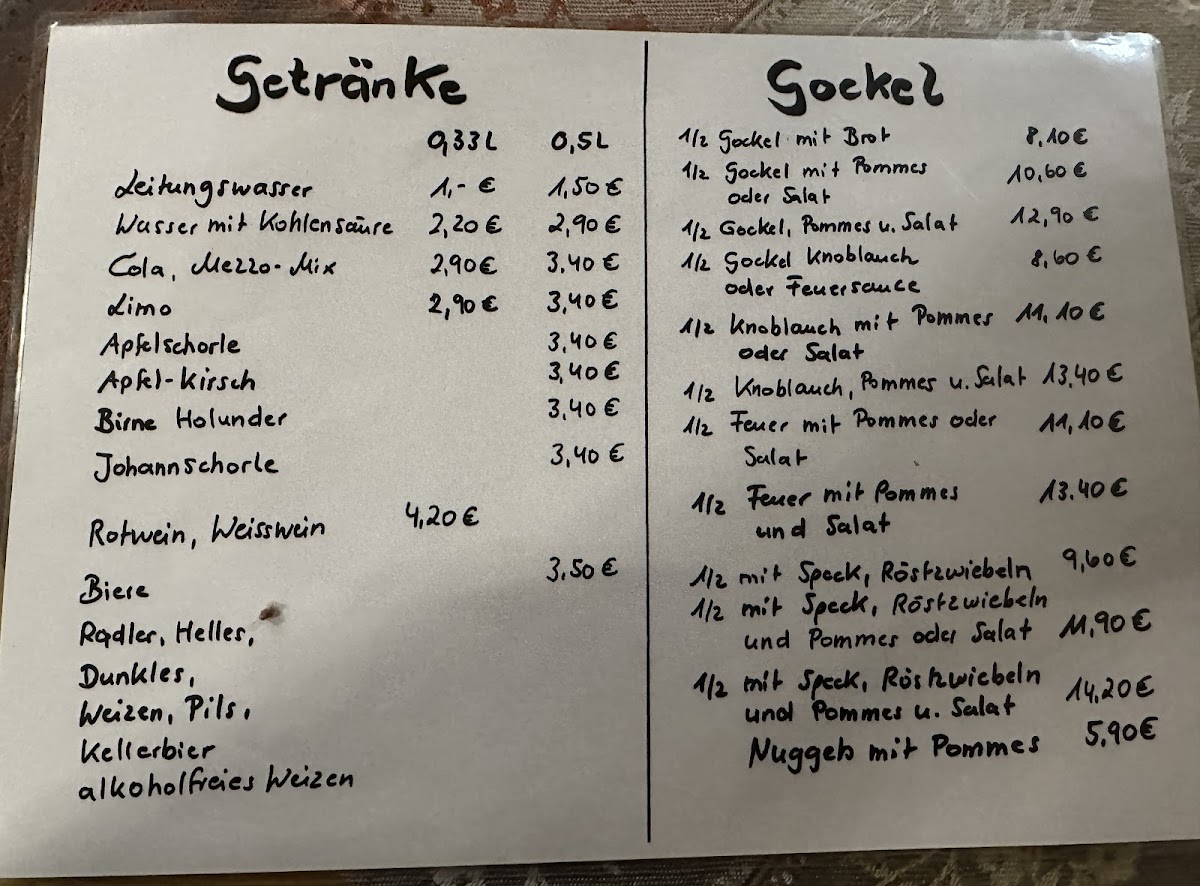 Getränke
0,33L 0,5L
Leitungswasser 1,- € 1,50 €
Wasser mit Kohlensäure 2,20 € 2,90 €
Cola, Mezzo-Mix 2,90 € 3,40 €
Limo 2,90 € 3,40 €
Apfelschorle 3,40 €
Apfel-Kirsch 3,40 €
Birne Holunder 3,40 €
Johannschorle 3,40 €
Rotwein, Weisswein 4,20 €
Biere 3,50 €
Radler, Helles,
Dunkles,
Weizen, Pils,
Kellerbier
alkoholfreies Weizen
Gockel
1/2 Gockel mit Brot 8,10 €
1/2 Gockel mit Pommes 10,60 €
oder Salat
1/2 Gockel, Pommes u. Salat 12,90 €
1/2 Gockel Knoblauch 8,60 €
oder Feuersauce
1/2 Knoblauch mit Pommes 11,10 €
oder Salat
1/2 Knoblauch, Pommes u. Salat 13,40 €
1/2 Feuer mit Pommes oder 11,10 €
Salat
1/2 Feuer mit Pommes 13.40 €
und Salat
1/2 mit Speck, Röstzwiebeln 9,60 €
1/2 mit Speck, Röstzwiebeln
und Pommes oder Salat 11,90 €
1/2 mit Speck, Röstzwiebeln
und Pommes u. Salat 14,20 €
Nuggets mit Pommes 5,90 €